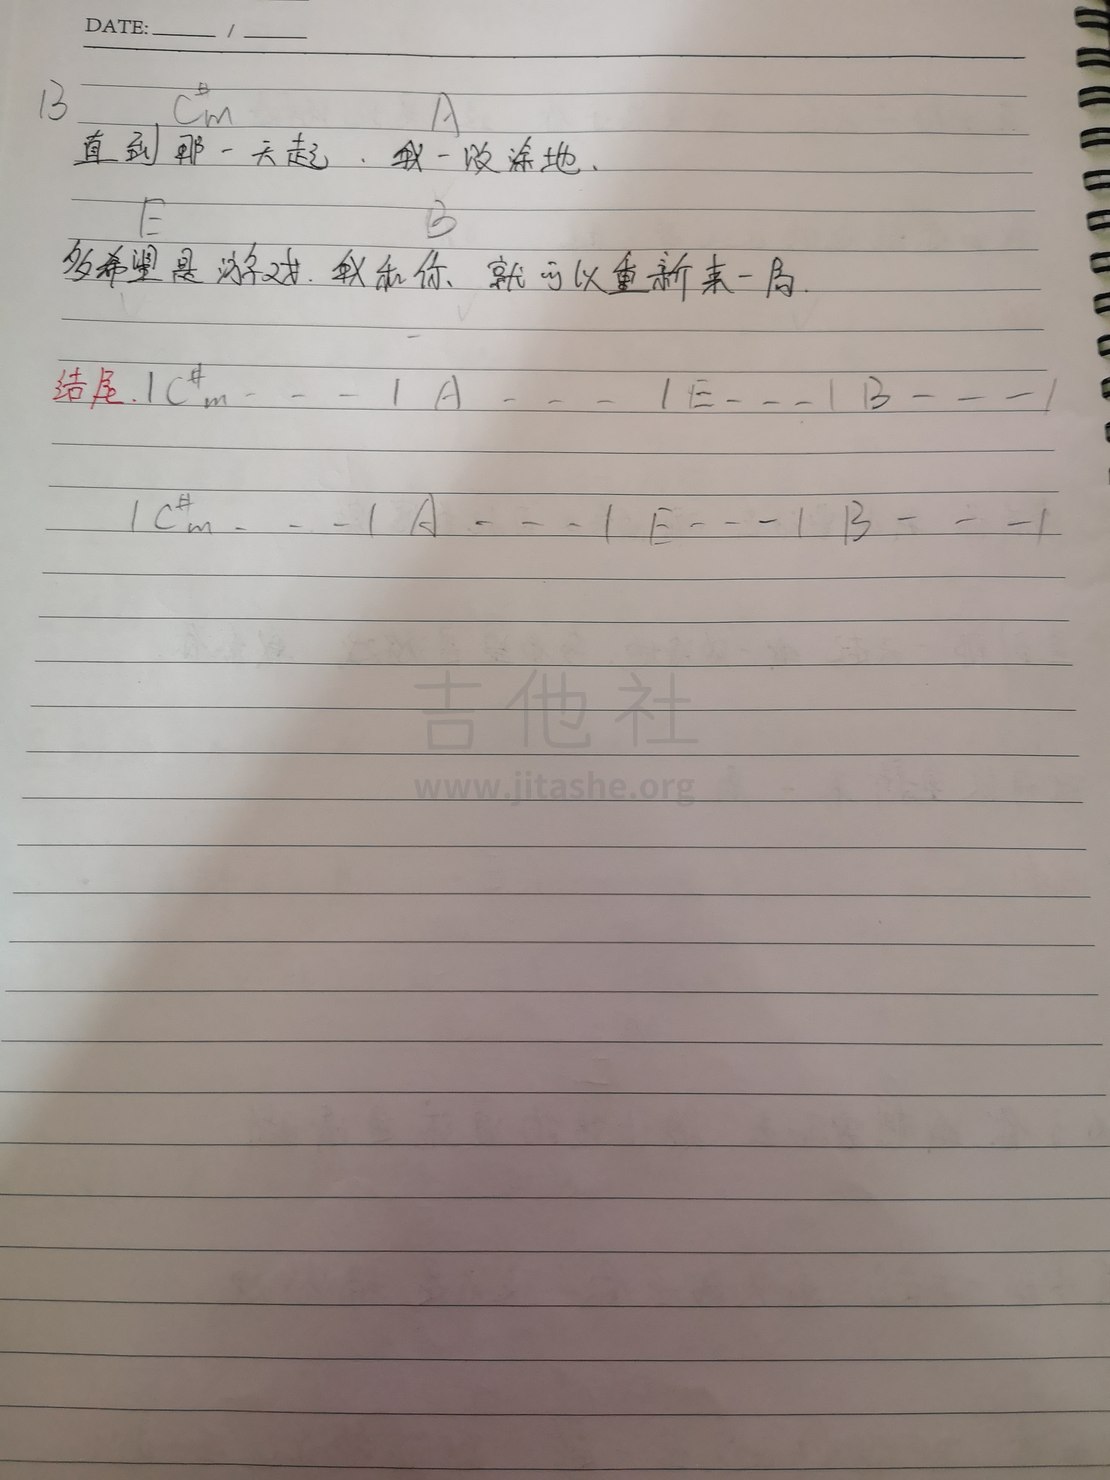 DATE:_____ / _____
B C#m A
直到那一天起.我一败涂地.
E B
多希望是游戏.我和你、就可以重新来一局.
结尾.| C#m - - - | A - - - | E - - - | B - - - |
| C#m - - - | A - - - | E - - - | B - - - |
吉他社
www.jitashe.org